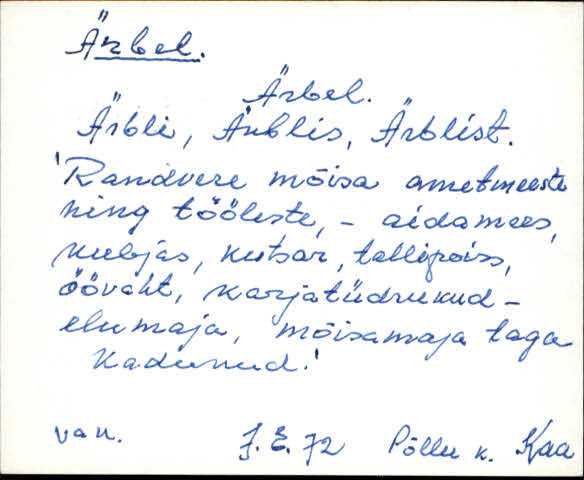 Ärbel.
Ärbel.
Ärbli, Ärblis, Ärblist.
'Randvere mõisa ametmeeste
ning tööliste, – aidamees,
kubjas, kutsar, tallipoiss,
öövaht, karjatüdrukud –
elumaja, mõisamaja taga
Kadunud.'
van. J.E.72 Põllu k. Kaa